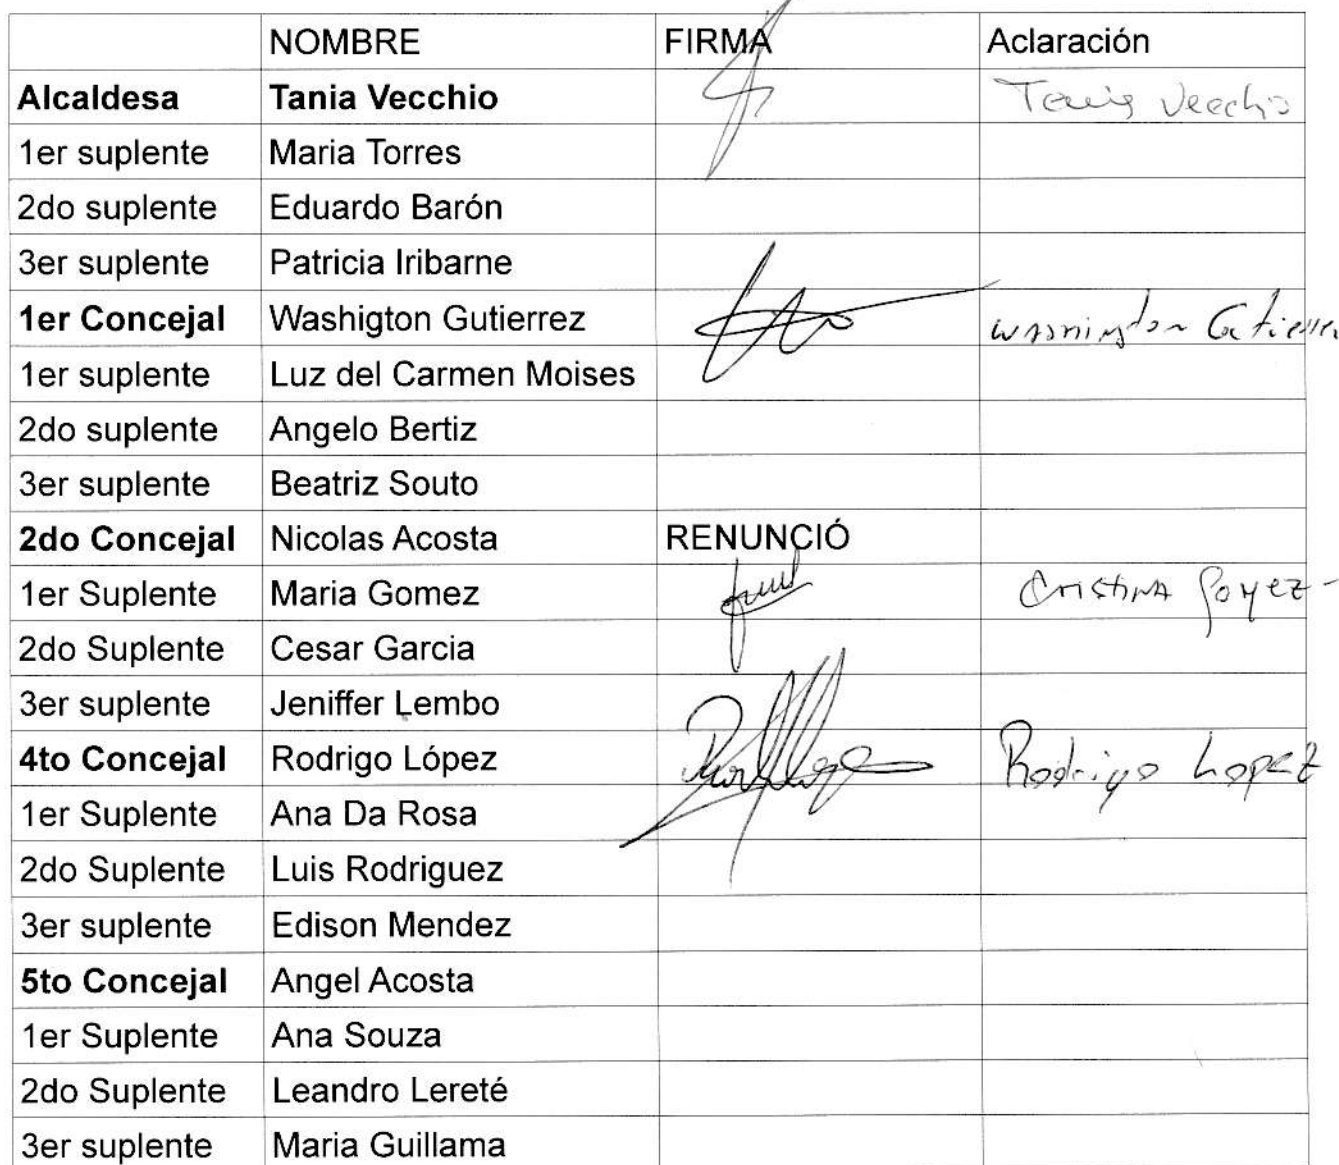 NOMBRE FIRMA Aclaración
Alcaldesa Tania Vecchio Tania Vecchio
1er suplente Maria Torres
2do suplente Eduardo Barón
3er suplente Patricia Iribarne
1er Concejal Washigton Gutierrez Washington Gutierrez
1er suplente Luz del Carmen Moises
2do suplente Angelo Bertiz
3er suplente Beatriz Souto
2do Concejal Nicolas Acosta RENUNCIÓ
1er Suplente Maria Gomez Cristina Gomez -
2do Suplente Cesar Garcia
3er suplente Jeniffer Lembo
4to Concejal Rodrigo López Rodrigo Lopez
1er Suplente Ana Da Rosa
2do Suplente Luis Rodriguez
3er suplente Edison Mendez
5to Concejal Angel Acosta
1er Suplente Ana Souza
2do Suplente Leandro Lereté
3er suplente Maria Guillama